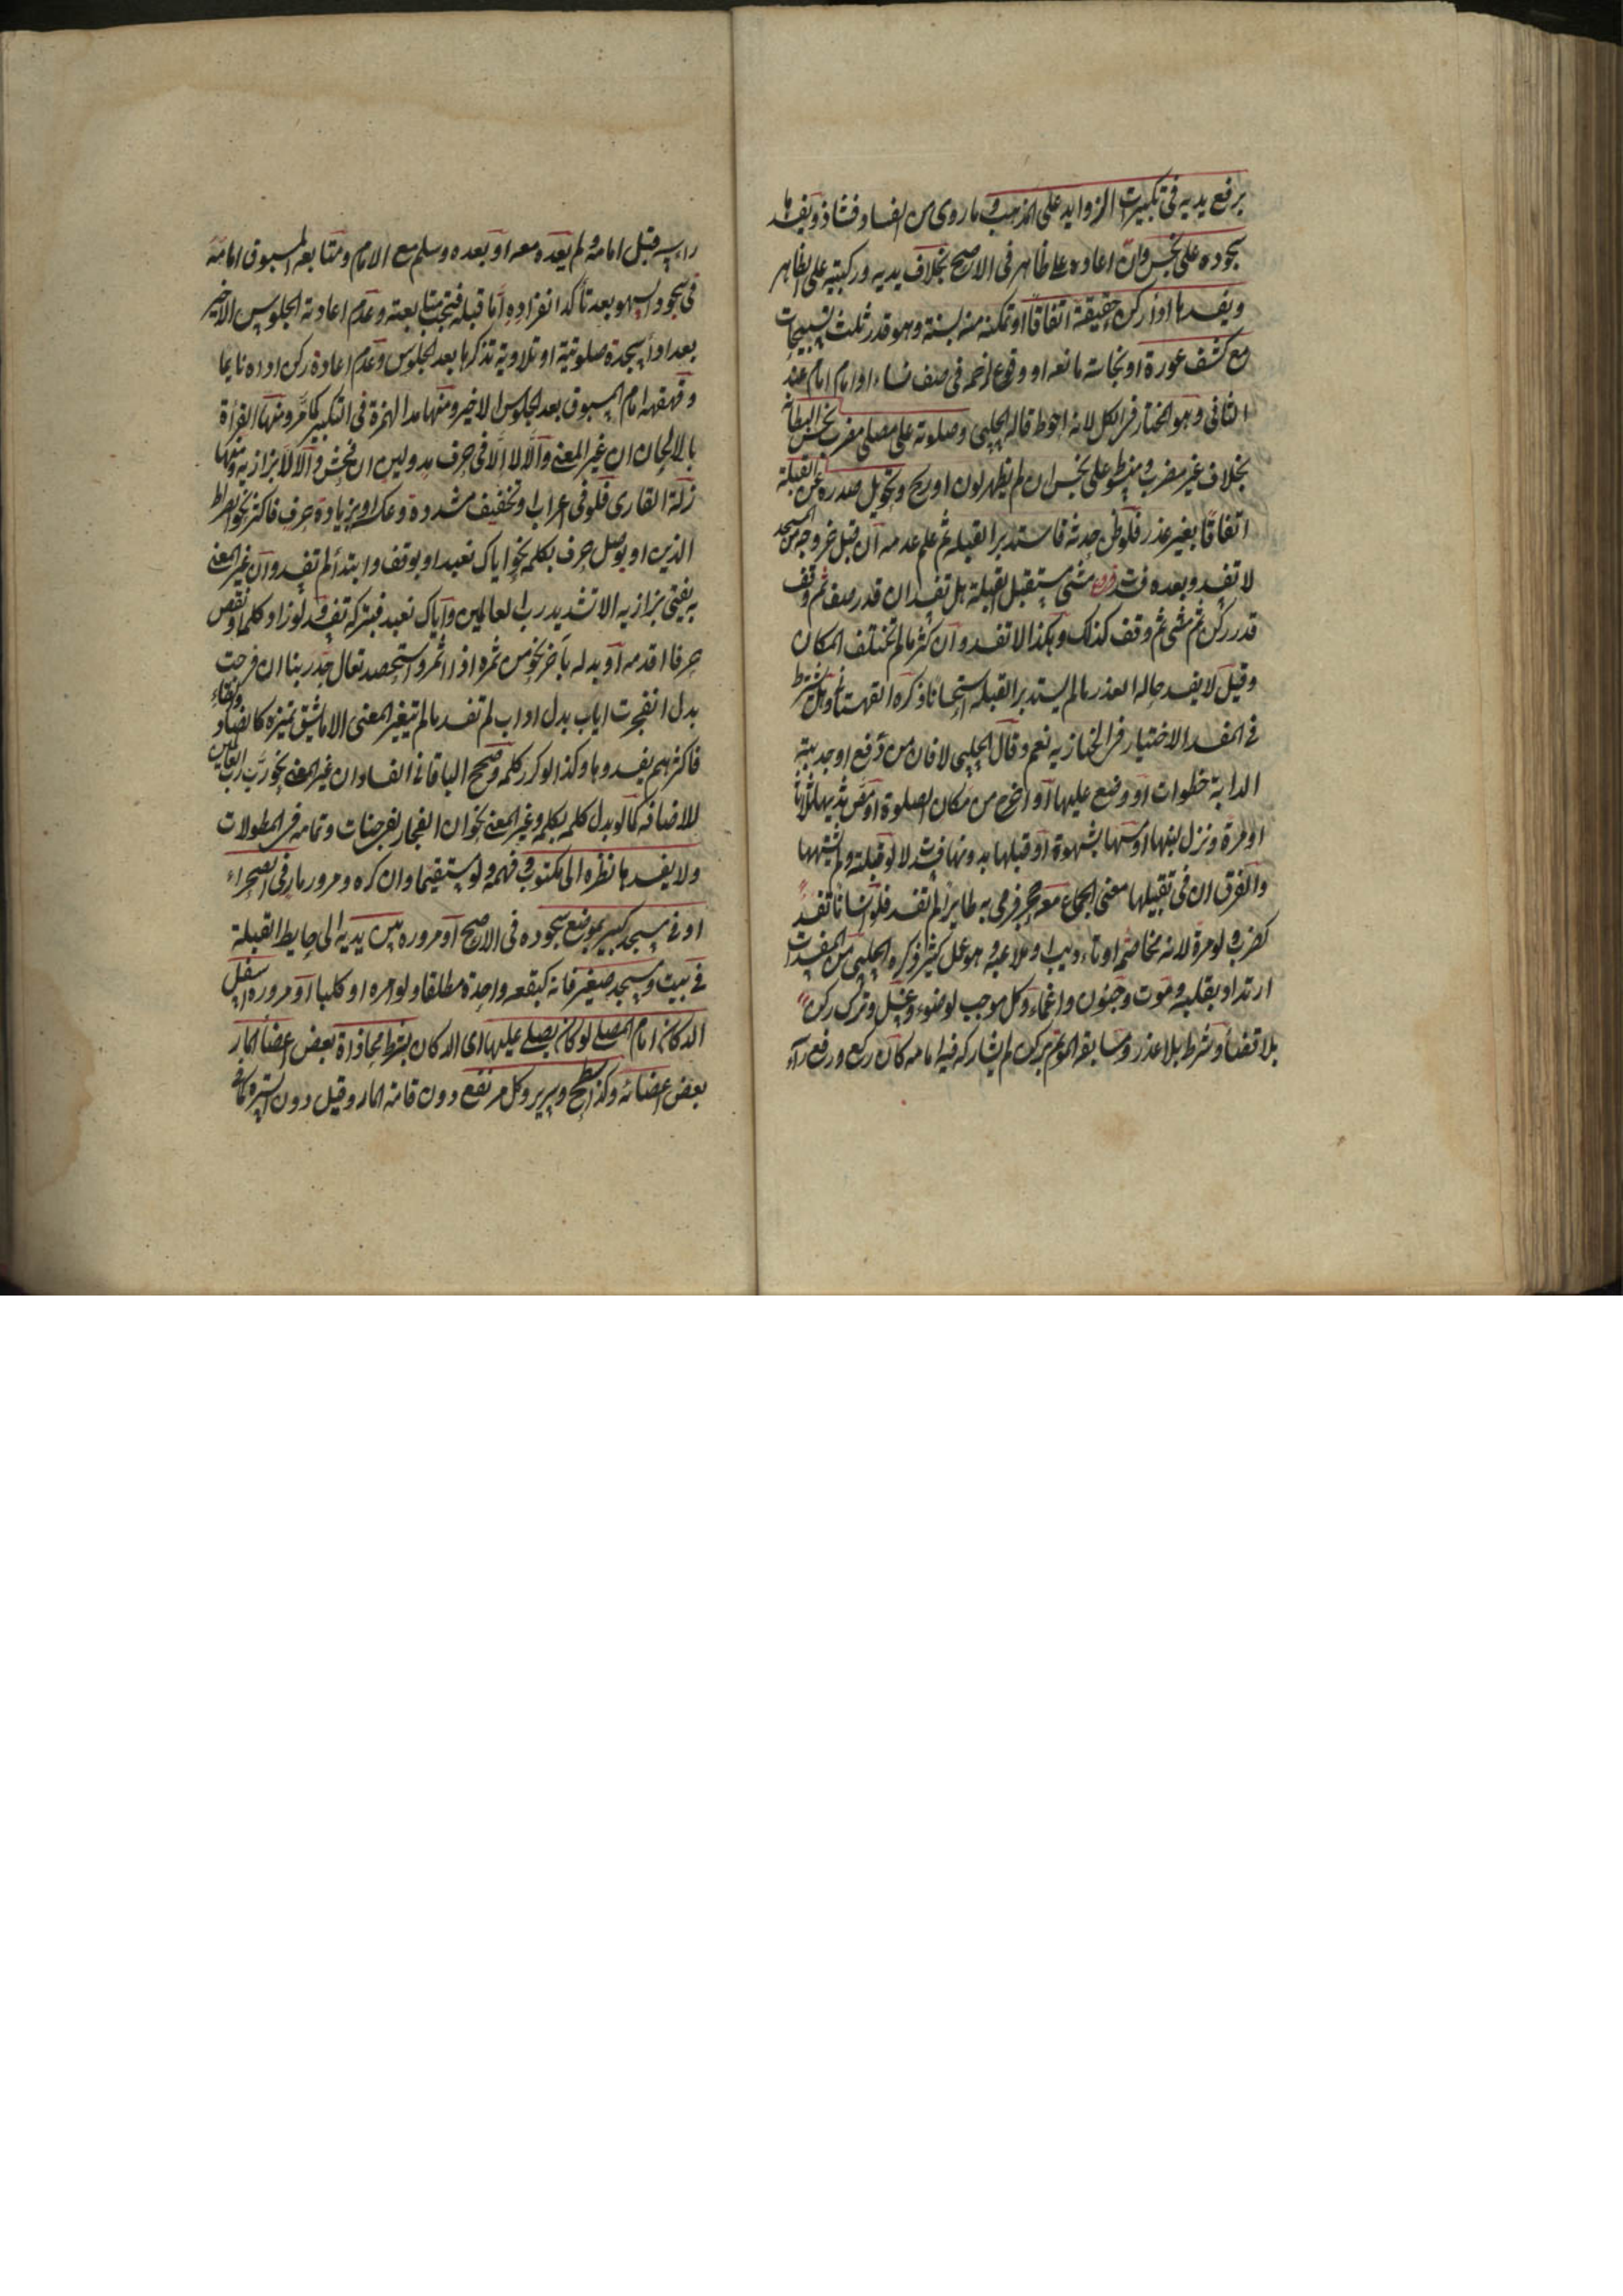 برفع يديه في تكبيرات الزوايد على المذهب وما روى من الفساد فشاذ ويفسدها
سجوده على نجس وان اعاده على طاهر في الاصح بخلاف يديه وركبتيه على الظاهر
ويفسدها اداء ركن حقيقة اتفاقا او تمكنه منه بسنة وهو قدر ثلث تسبيحات
مع كشف عورة او نجاسة مانعه او وقوع لزحمه في صف نساء او امام امام عند
الثاني وهو المختار في الكل لانه احوط قاله الحلبي وصلوته على مصلى مضرب نجس البطانة
بخلاف غير مضرب ومبسوط على نجس ان لم يظهر لون او ريح وتحويل صدره عن القبلة
اتفاقا بغير عذر فلو ظن حدثه فاستدبر القبلة ثم علم عدمه ان قبل خروجه من المسجد
لا تفسد وبعده فسدت فروع مشى مستقبل القبلة هل تفسد ان قدر صف ثم وقف
قدر ركن ثم مشى ثم وقف كذلك وهكذا لا تفسد وان كثر ما لم تختلف المكان
وقيل لا يفسد حالة العذر ما لم يستدبر القبلة استحسانا ذكره القهستاني وهل يشترط
في المفسد الاختيار في الخبازيه نعم وقال الحلبي لا فان من دفع او جذبته
الدابة خطوات او وضع عليها او اخرج من مكان الصلوة او مص ثديها ثلاثا
او مرة ونزل لبنها او مسها بشهوة او قبلها بدونها فسدت لا لو قبلته ولم يشتهها
والفرق ان في تقبيلها معنى الجماع معه حجر فرمى به طايرا لم تفسد فلو انسانا تفسد
كضرب ولو مرة لانه مخاصمة او تاديب او ملاعبة وهو عمل كثير ذكره الحلبي من المفسدات
ارتداد بقلبه وموت وجنون واغماء وكل موجب لوضوء وغسل وترك ركن
بلا قضاء وشرط بلا عذر ومسابقة المؤتم بركن لم يشاركه فيه امامه كان ركع ورفع راء
راسه قبل امامه ولم يعده معه او بعده وسلم مع الامام ومتابعة المسبوق امامه
في سجود السهو بعد تاكد انفراده اما قبله فتجب متابعته وعدم اعادته الجلوس الاخير
بعد اداء سجدة صلوتية او تلاوية تذكرها بعد الجلوس وعدم اعادة ركن اداه نايما
وقهقهة امام المسبوق بعد الجلوس الاخير ومنها مد الهمزة في التكبير كما مر ومنها القرأة
بالالحان ان غير المعنى والا لا الا في حرف مد ولين ان فحش والا لا بزازيه ومنها
زلة القارى فلو في اعراب او تخفيف مشددة وعكسه او بزيادة حرف فاكثر نحو الصراط
الذين او بوصل حرف بكلمة نحو اياك نعبد او بوقف وابتدا لم تفسد وان غير المعنى
به يفتى بزازيه الا تشديد رب العالمين واياك نعبد فبتركه تفسد ولو زاد كلمة او نقص
حرفا او قدمه او بدله باخر نحو من ثمره اذا اثمر واستحصد تعال جد ربنا انفرجت
بدل انفجرت اياب بدل اواب لم تفسد ما لم يتغير المعنى الا ما يشق تمييزه كالضاد والظاء
فاكثرهم لم يفسدوها وكذا لو كرر كلمة وصحح الباقاني الفساد ان غير المعنى نحو رب رب العالمين
للاضافة كما لو بدل كلمة بكلمة وغير المعنى نحو ان الفجار لفي جنات وتمامه في المطولات
ولا يفسدها نظره الى مكتوب وفهمه ولو مستفهما وان كره ومرور مار في الصحراء
او في مسجد كبير بموضع سجوده في الاصح او مروره بين يديه الى حايط القبلة
في بيت ومسجد صغير فانه كبقعة واحدة مطلقا ولو امرءة او كلبا او مروره اسفل
الدكان امام المصلي لو كان يصلي عليها اى الدكان بشرط محاذاة بعض اعضاء المار
بعض اعضائه وكذا سطح وسرير وكل مرتفع دون قامة المار وقيل دون السترة كما في